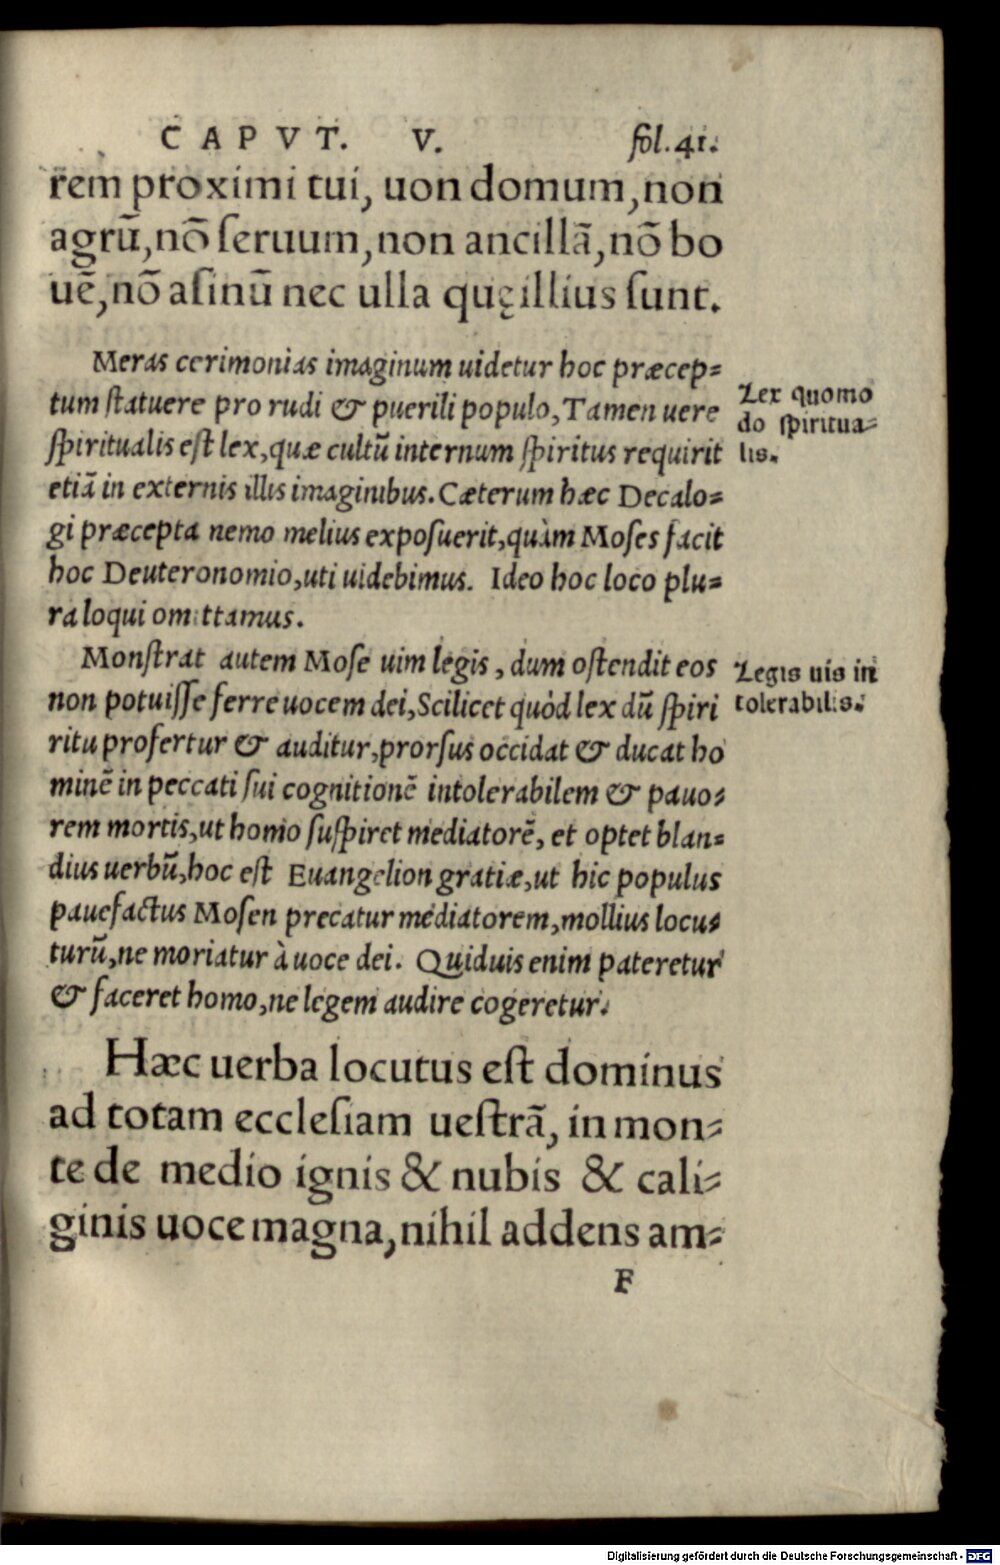 CAPVT. V. fol. 41.
rem proximi tui, uon domum, non
agrū, nō ſeruum, non ancillā, nō bo
uē, nō aſinū nec ulla quę illius ſunt.
Meras cerimonias imaginum uidetur hoc præcep⸗
tum ſtatuere pro rudi & puerili populo, Tamen uere
ſpiritualis eſt lex, quæ cultū internum ſpiritus requirit
etiā in externis illis imaginibus. Cæterum hæc Decalo⸗
gi præcepta nemo melius expoſuerit, quàm Moſes facit
hoc Deuteronomio, uti uidebimus. Ideo hoc loco plu⸗
ra loqui omittamus.
Lex quomo
do ſpiritua⸗
lis.
Monſtrat autem Moſe uim legis, dum oſtendit eos
non potuiſſe ferre uocem dei, Scilicet quòd lex dū ſpiri
ritu profertur & auditur, prorſus occidat & ducat ho
minē in peccati ſui cognitionē intolerabilem & pauo⸗
rem mortis, ut homo ſuſpiret mediatorē, et optet blan⸗
dius uerbū, hoc eſt Euangelion gratiæ, ut hic populus
pauefactus Moſen precatur mediatorem, mollius locu⸗
turū, ne moriatur à uoce dei. Quiduis enim pateretur
& faceret homo, ne legem audire cogeretur.
Legis uis in
tolerabilis.
Hæc uerba locutus eſt dominus
ad totam eccleſiam ueſtrā, in mon⸗
te de medio ignis & nubis & cali⸗
ginis uoce magna, nihil addens am⸗
F
Digitalisierung gefördert durch die Deutsche Forschungsgemeinschaft - DFG